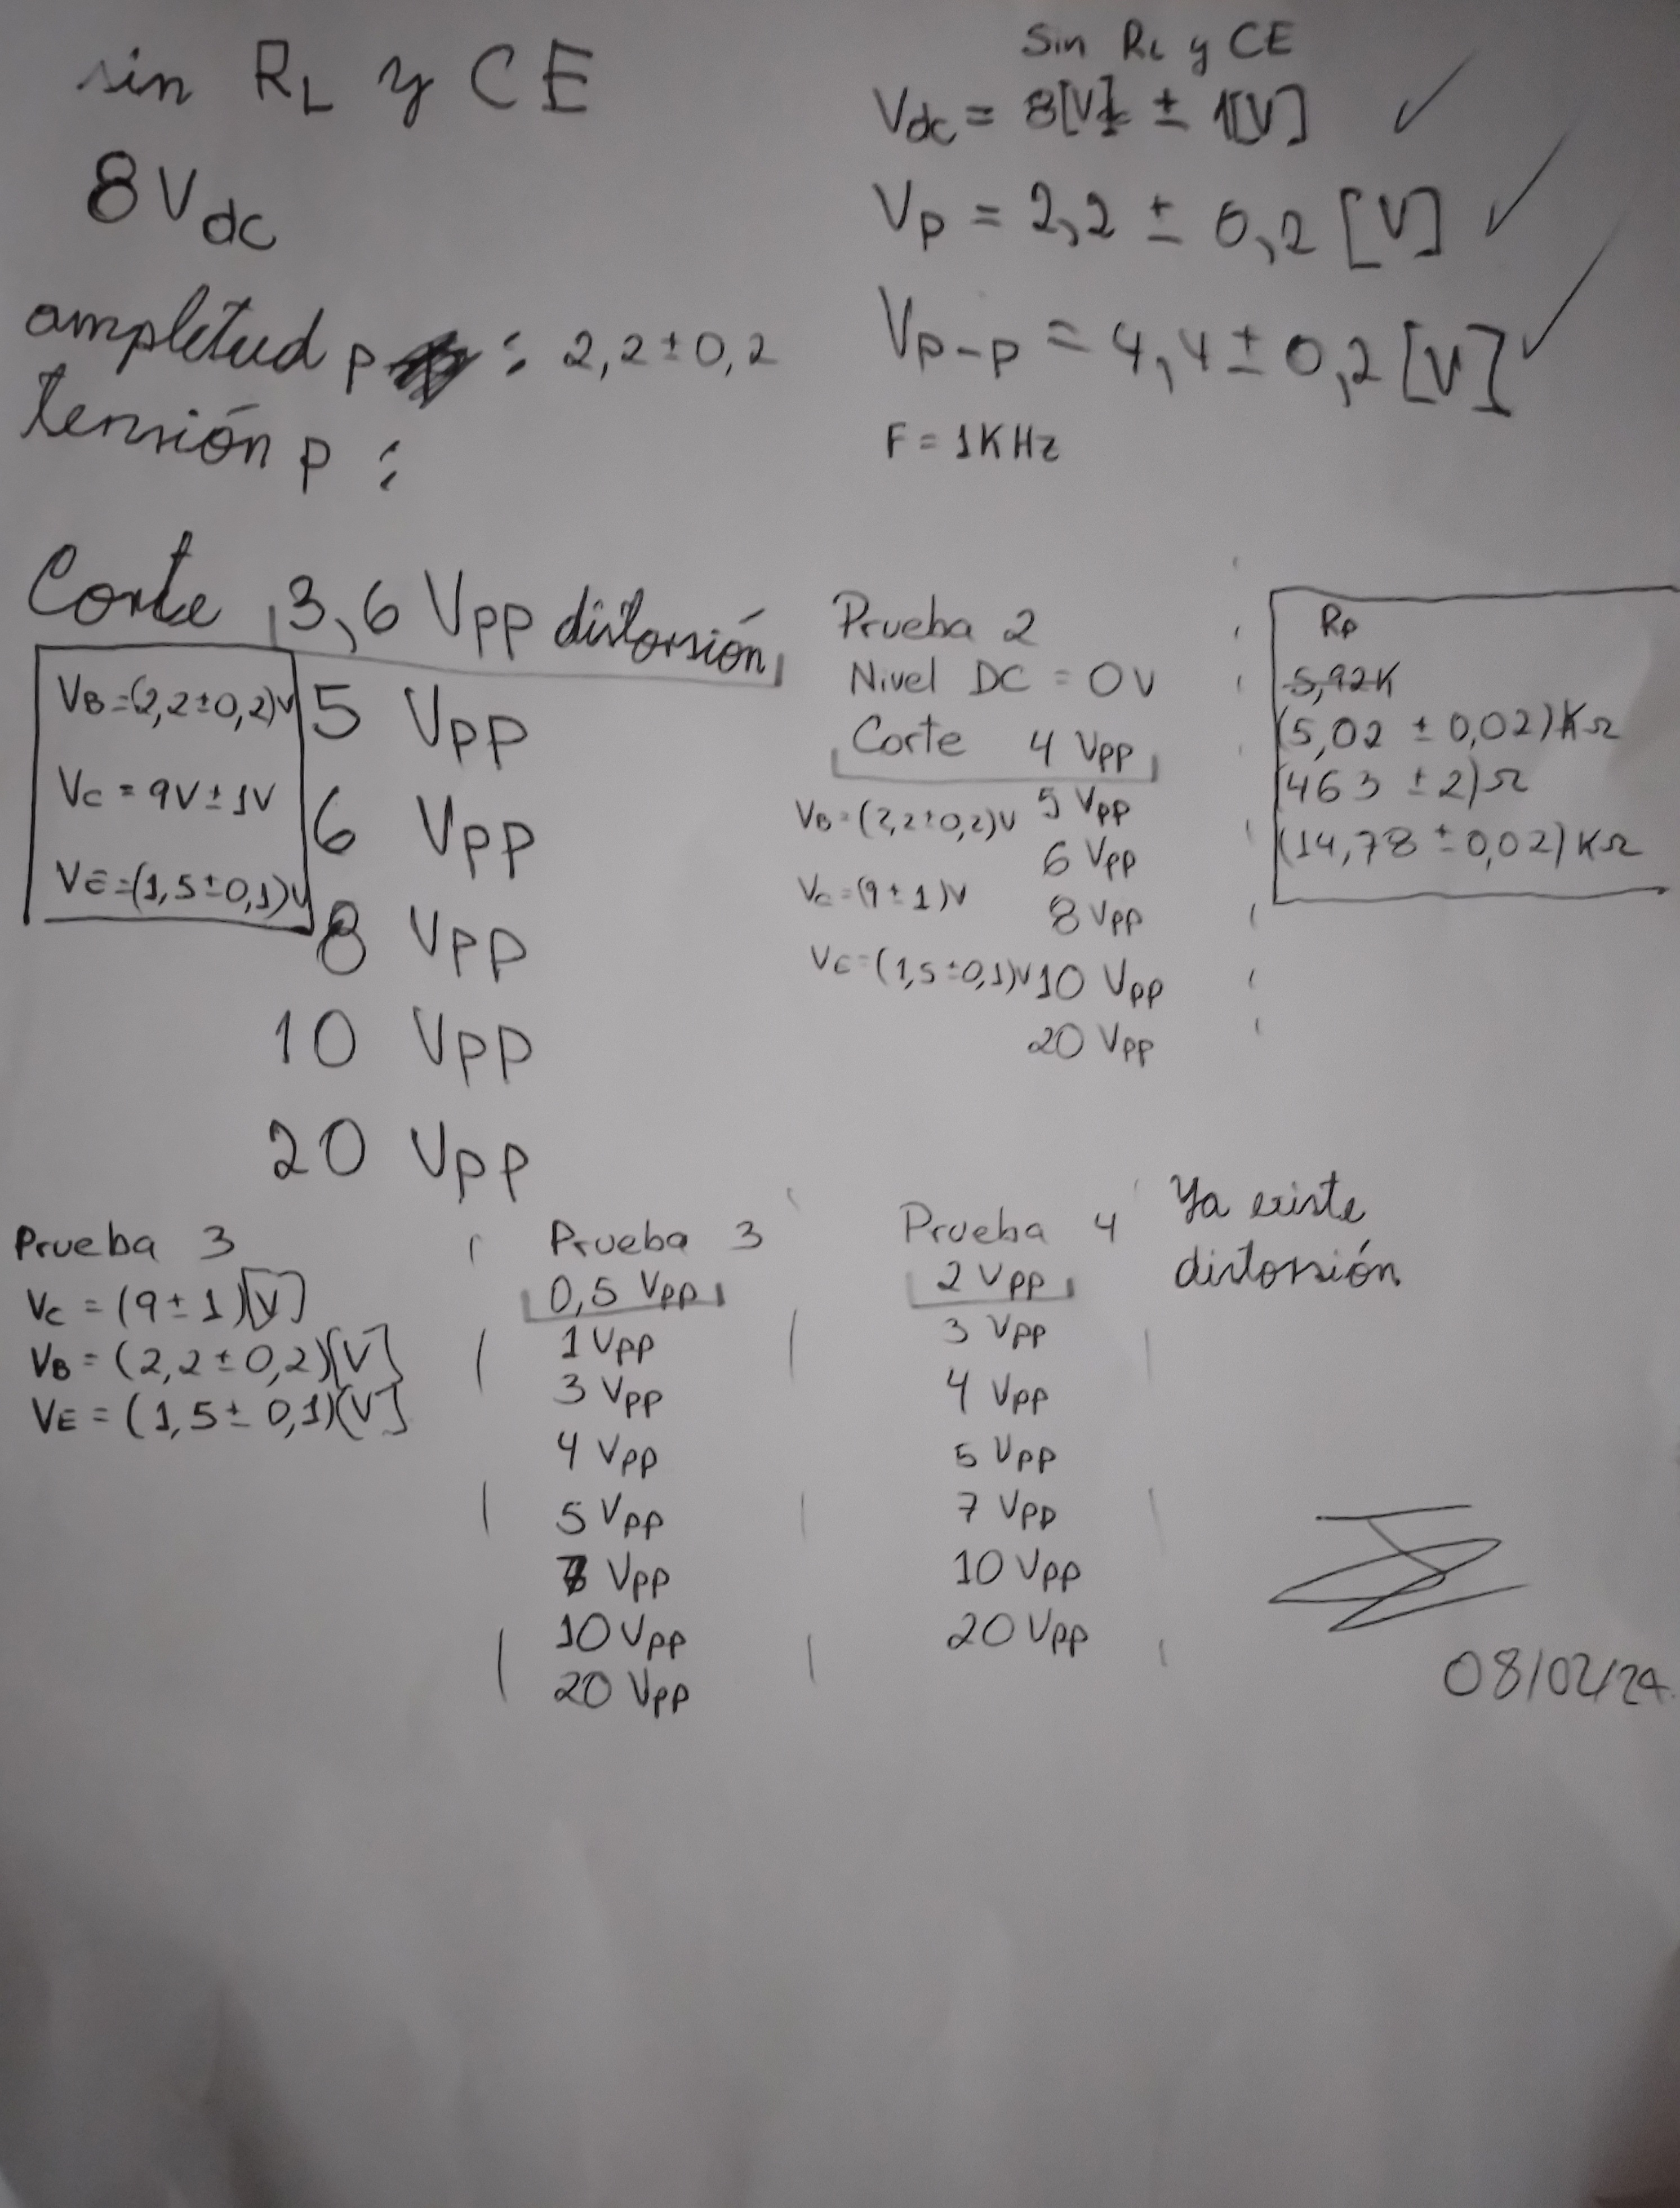 sin RL y CE
8 Vdc
ampletud p : 2,2 ± 0,2
tensión p :
Sin RL y CE
Vdc = 8[V] ± 1[V]
Vp = 2,2 ± 0,2 [V]
Vp-p = 4,4 ± 0,2 [V]
F = 1KHz
Corte 3,6 VPP distorsión
VB=(2,2±0,2)V
VC = 9V ± 1V
VE=(1,5±0,1)V
5 VPP
6 VPP
8 VPP
10 VPP
20 VPP
Prueba 2
Nivel DC = 0V
Corte 4 VPP
VB=(2,2±0,2)V 5 VPP
6 VPP
VC=(9±1)V
8 VPP
VE=(1,5±0,1)V 10 VPP
20 VPP
Rp
5,92K
(5,02 ± 0,02)KΩ
(463 ± 2)Ω
(14,78 ± 0,02)KΩ
Prueba 3
VC = (9 ± 1)[V]
VB = (2,2 ± 0,2)[V]
VE = (1,5 ± 0,1)[V]
Prueba 3
0,5 VPP
1 VPP
3 VPP
4 VPP
5 VPP
VPP
10 VPP
20 VPP
Prueba 4
2 VPP
3 VPP
4 VPP
5 VPP
7 VPP
10 VPP
20 VPP
Ya existe
distorsión
08/02/24.